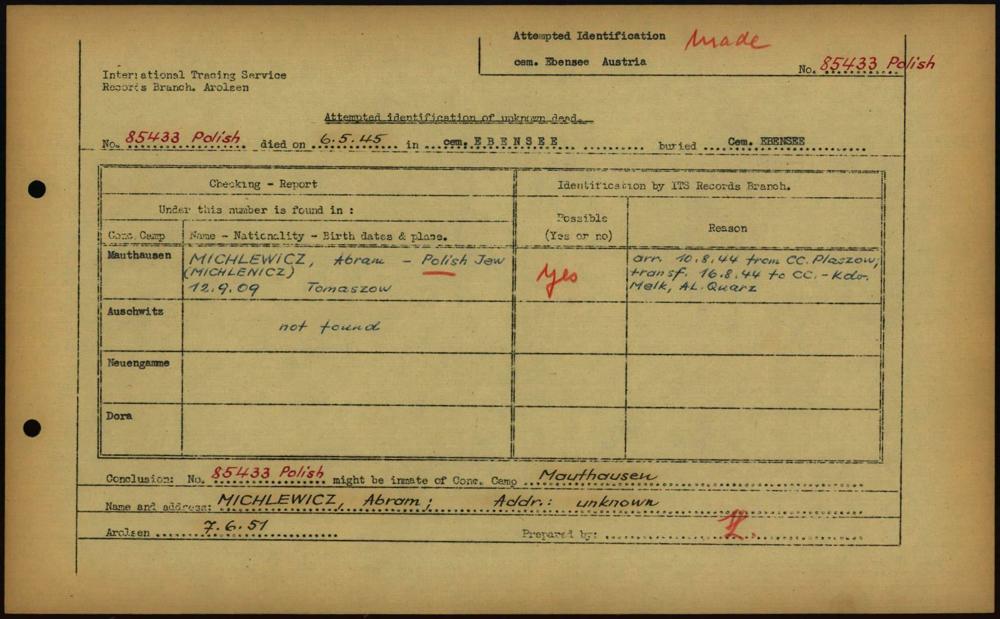 Attempted Identification made
cem. Ebensee Austria
No. 85433 Polish
International Tracing Service
Records Branch. Arolsen
Attempted identification of unknown dead.
No. 85433 Polish died on 6.5.45 in cem. EBENSEE buried Cem. EBENSEE
Checking - Report
Identification by ITS Records Branch.
Under this number is found in :
Possible
(Yes or no)
Reason
Conc. Camp
Name - Nationality - Birth dates & place.
Mauthausen
MICHLEWICZ, Abram - Polish Jew
(MICHLENICZ)
12.9.09 Tomaszow
Yes
arr. 10.8.44 from CC. Plaszow,
transf. 16.8.44 to CC.-Kdo.
Melk, AL. Quarz
Auschwitz
not found
Neuengamme
Dora
Conclusion: No. 85433 Polish might be inmate of Conc. Camp Mauthausen
Name and address: MICHLEWICZ, Abram; Addr.: unknown
Arolsen 7.6.51
Prepared by: